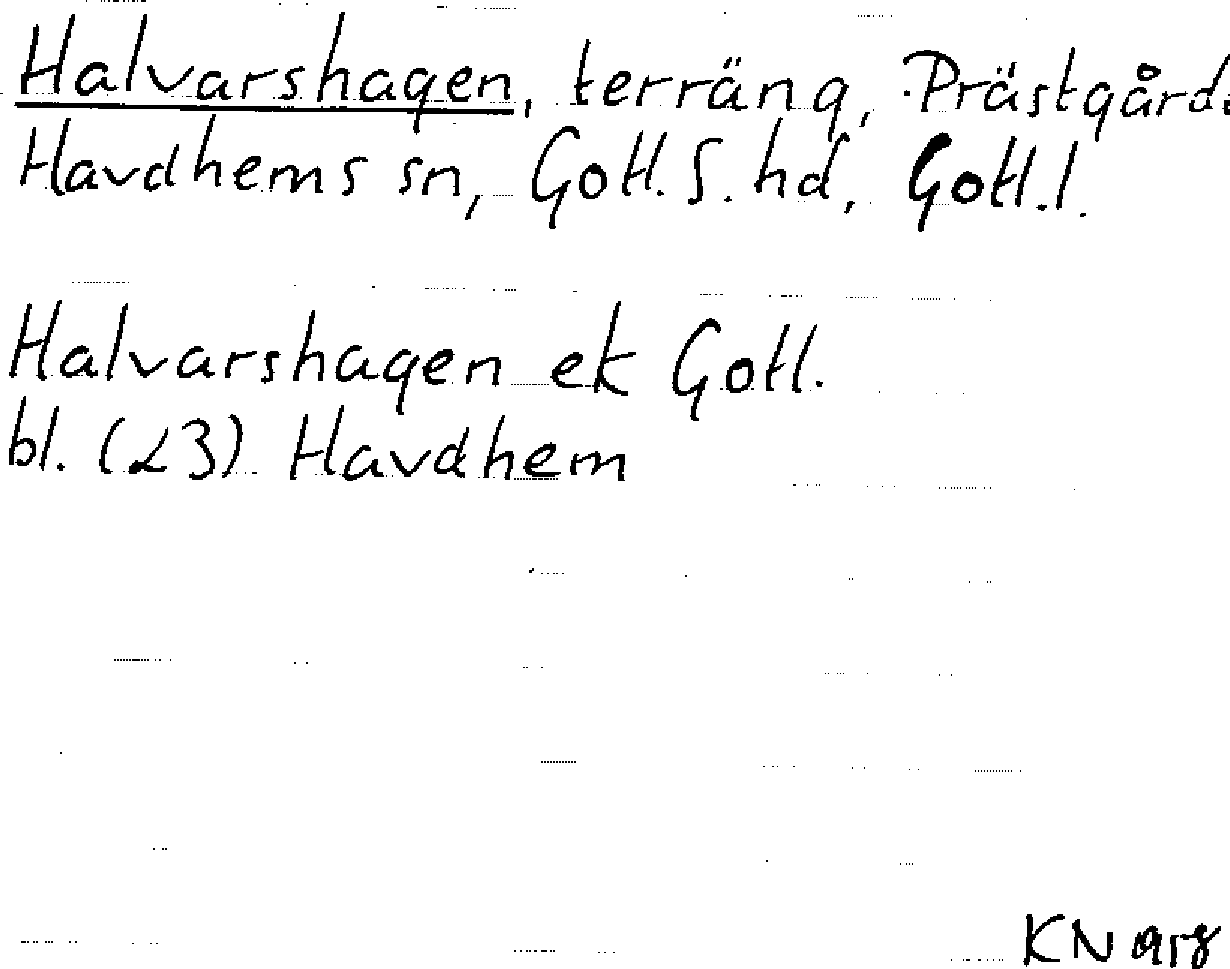 Halvarshagen, terräng, Prästgård
Havdhems sn, Gotl. S. hd, Gotl. l.
Halvarshagen ek Gotl.
bl. (23) Havdhem
KN